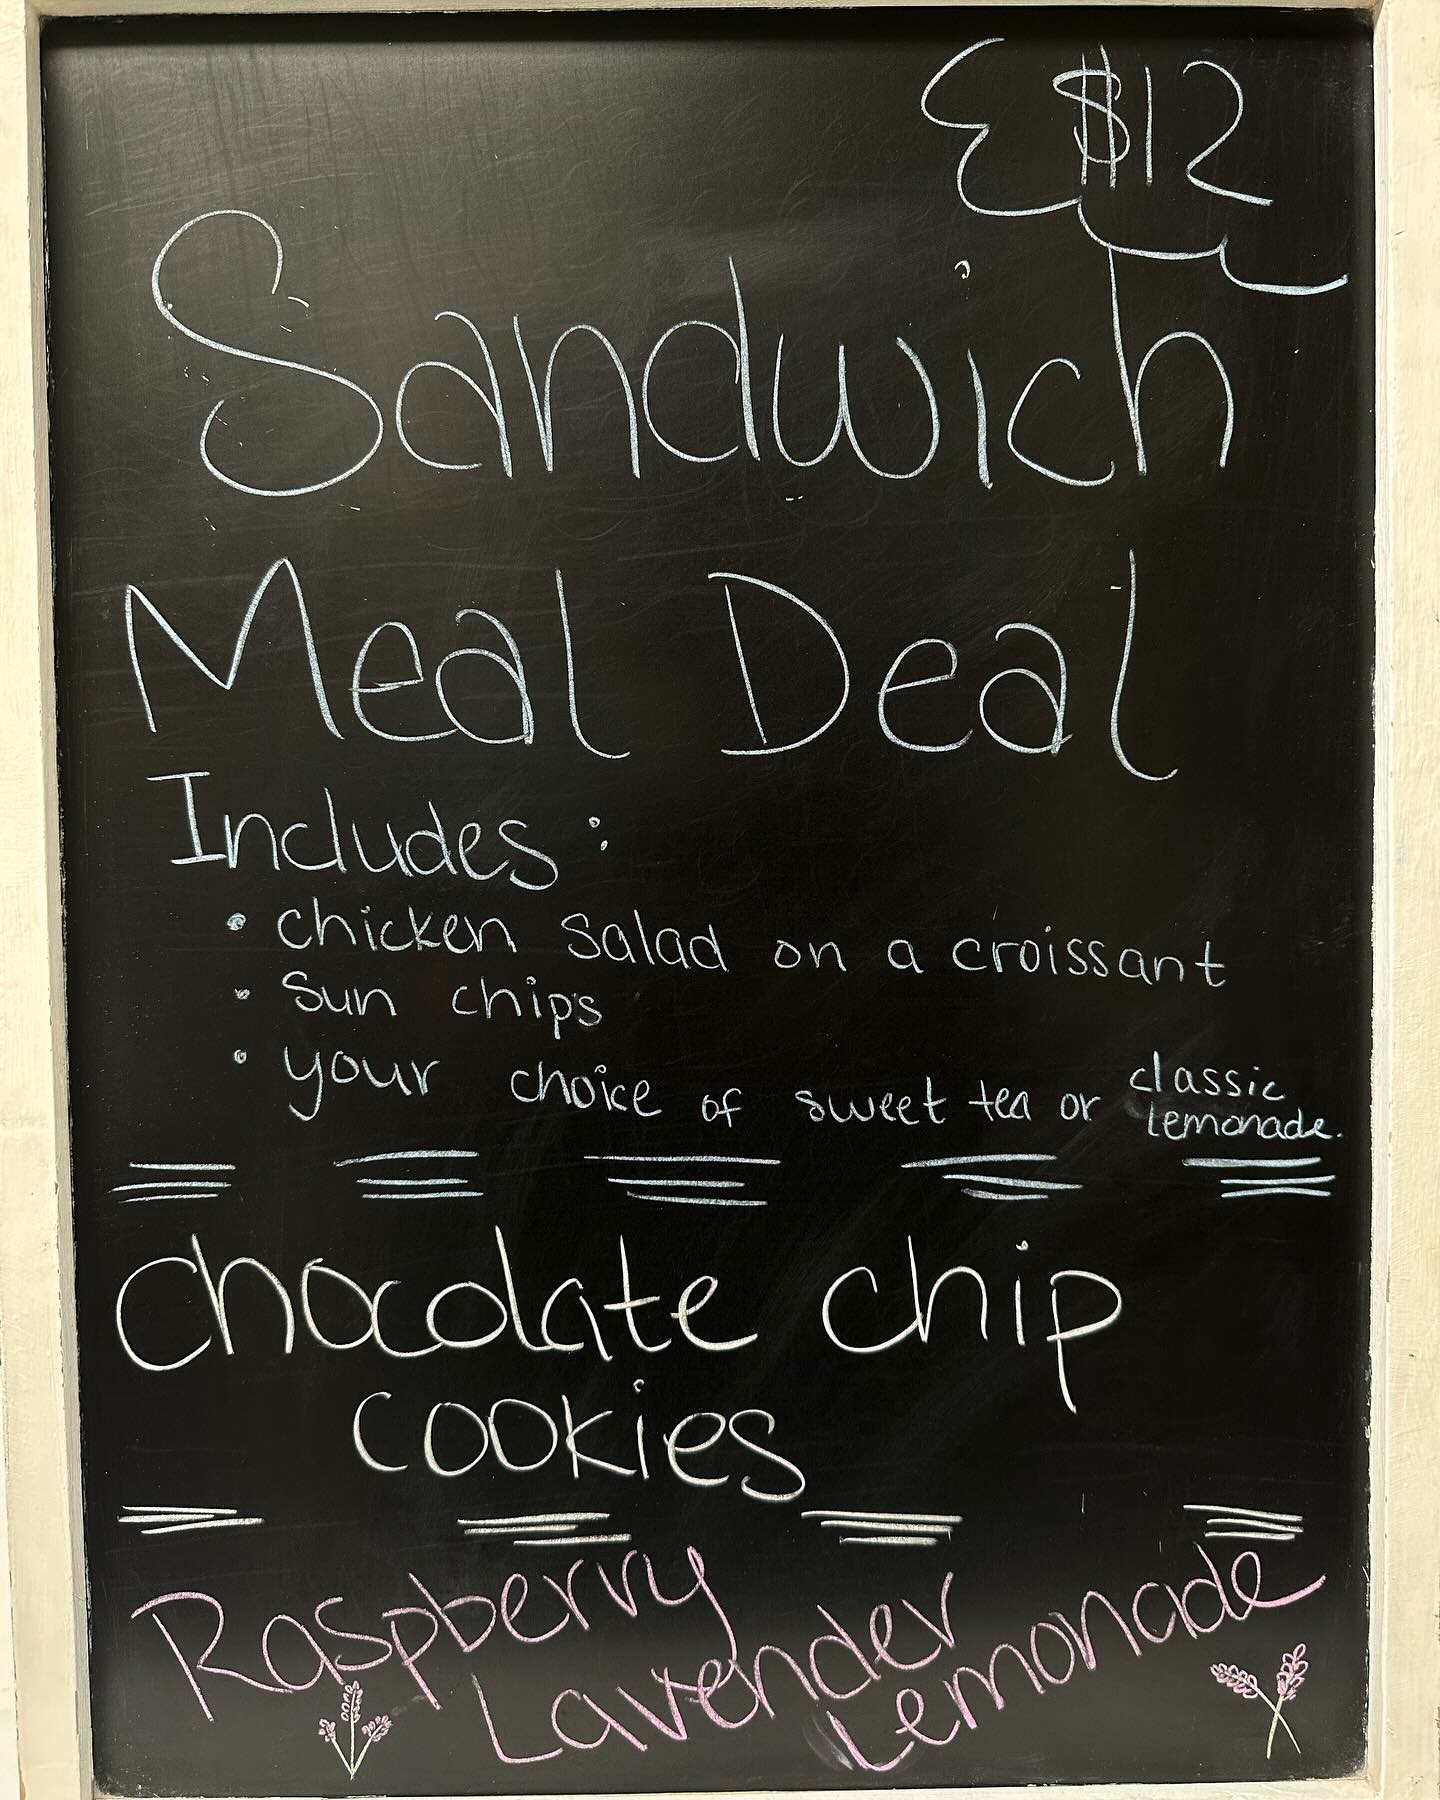 $12
Sandwich
Meal Deal
Includes:
• chicken salad on a croissant
• Sun chips
• your choice of sweet tea or classic lemonade.
Chocolate chip
cookies
Raspberry
Lavender
Lemonade